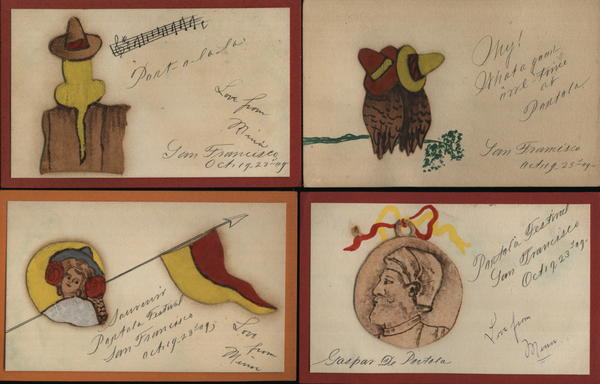 Port-a-la-La
Love from
Minn
San Francisco
Oct. 19-23-09.
My!
What a good
time
at
Portola.
San Francisco
Oct. 19-23rd-09-
Souvenir
Portola Festival
San Francisco
Oct. 19-23rd-09;
Love
from
Minn
Portola Festival
San Francisco
Oct. 19-23rd 09
Love from
Minn
Gaspar De Portola